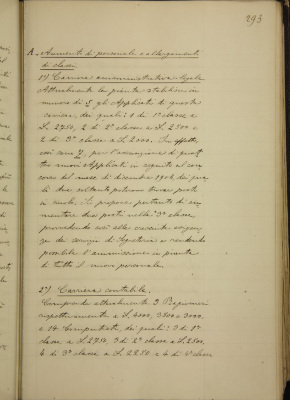 293
A - Aumenti di personale e allargamenti
di classi.
1°) Carriera amministrativa legale
Attualmente la pianta stabilisce in
numero di 5 gli Applicati di questa
carriera, dei quali: 1 di 1ª classe a
L. 2750, 2 di 2ª classe a L. 2500 e
2 di 3ª classe a L. 2000. In effetto
essi sono 7, per l'assunzione di
nuovi Applicati in seguito al con
corso del mese di dicembre 1906, dei qua
li due soltanto poterono trovar posto
in ruolo. Si propone pertanto di au
mentare due posti nella 3ª classe
provvedendo così alle esigen
ze dei servizi di Segreteria e rendendo
possibile l'ammissione in pianta
di tutto il nuovo personale.
2°) Carriera contabile.
Comprende attualmente 3 Ragionieri
rispettivamente a L. 4000, 3500 e 3000
e 14 Computisti, dei quali: 3 di 1ª
classe a L. 2750, 3 di 2ª classe a L. 2500,
4 di 3ª classe a L. 2250 e 4 di 4ª classe